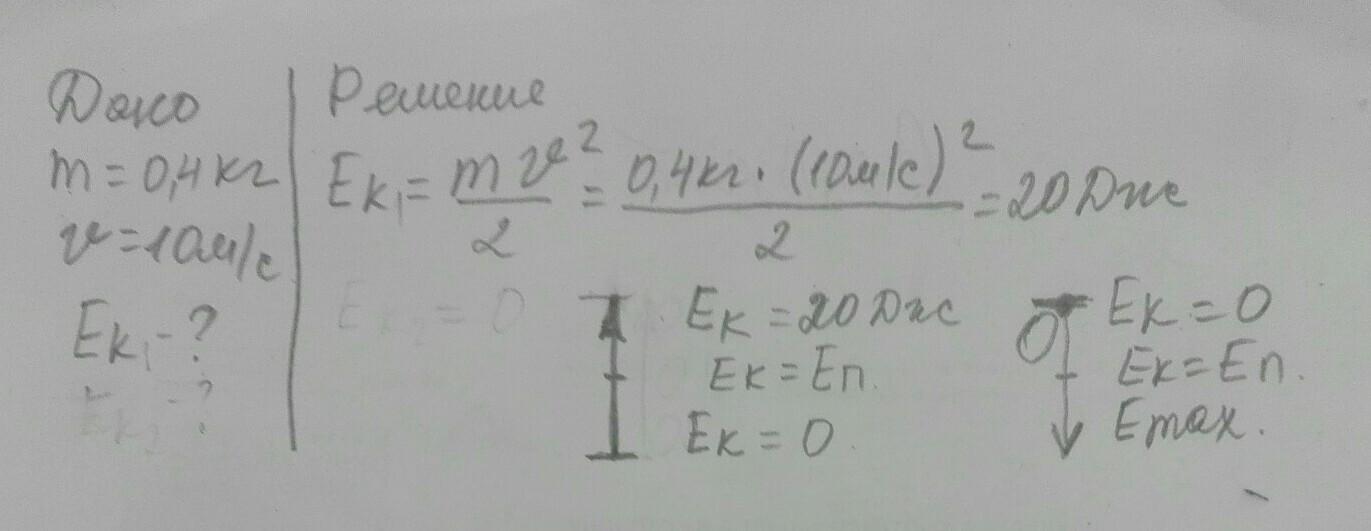 Дано
m = 0,4 кг
v = 10 м/с
Eк₁ - ?
Eк₂ - ?
Решение
Eк₁ = mv²/2 = 0,4 кг · (10 м/с)²/2 = 20 Дж
Eк₂ = 0
Eк = 20 Дж
Eк = Eп.
Eк = 0.
0
Eк = 0
Eк = Eп.
Emax.